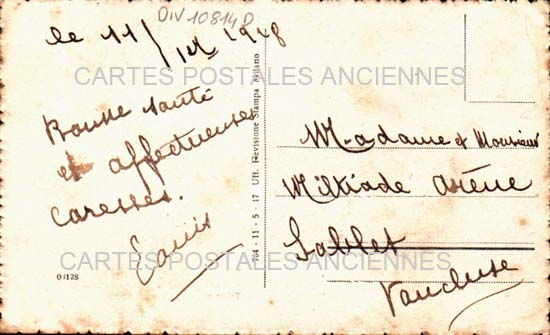 DIV 10814D
le 11/ 1948
CARTES POSTALES ANCIENNES
Bonne santé
et affectueuses
caresses.
Louis
704 - 11 - 5 - 17 Uff. Revisione Stampa Milano
Madame et Monsieur
Miltiade
Sablet
Vaucluse
CARTES POSTALES ANCIENNES